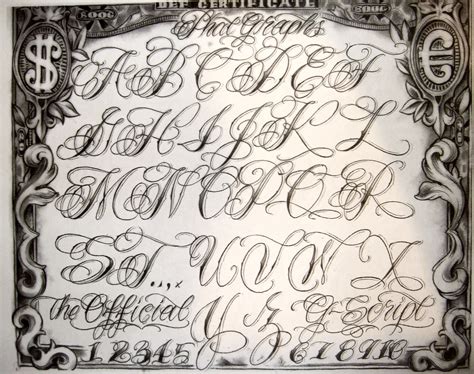 DEF CERTIFICATE
Phat Graphs
$ A B C D E F €
G H I J K L
M N O P Q R
S T . , U V W X
the Official Y Z G-Script
1 2 3 4 5 6 7 8 9 10